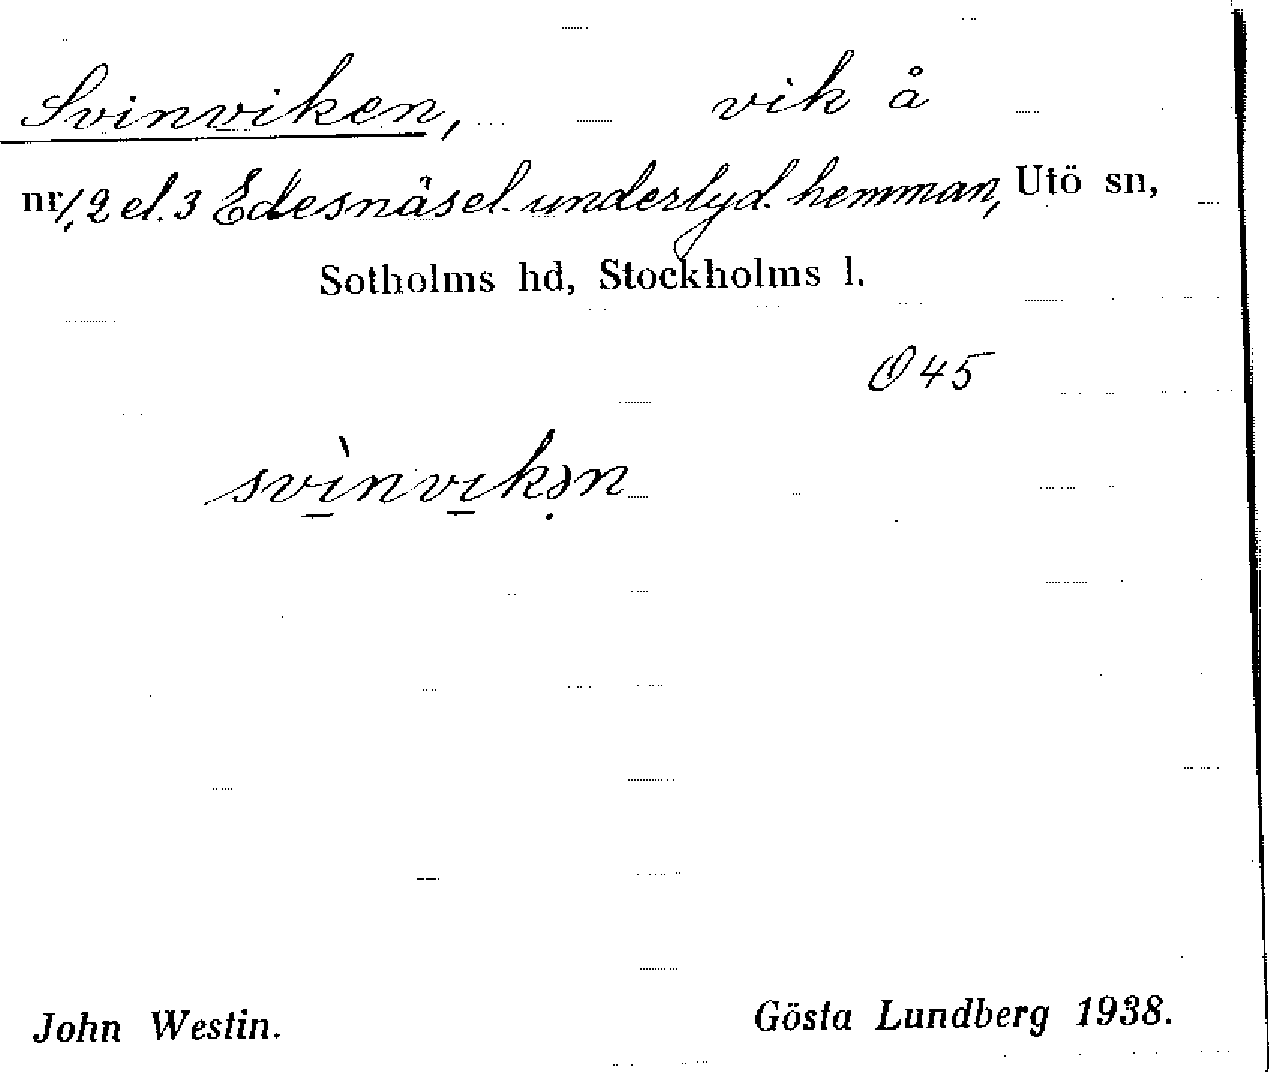 Svinviken, vik å
nr 1, 2 el. 3 Edesnäs el. underlyd. hemman, Utö sn,
Sotholms hd, Stockholms l.
O 45
svìnvikən
John Westin. Gösta Lundberg 1938.